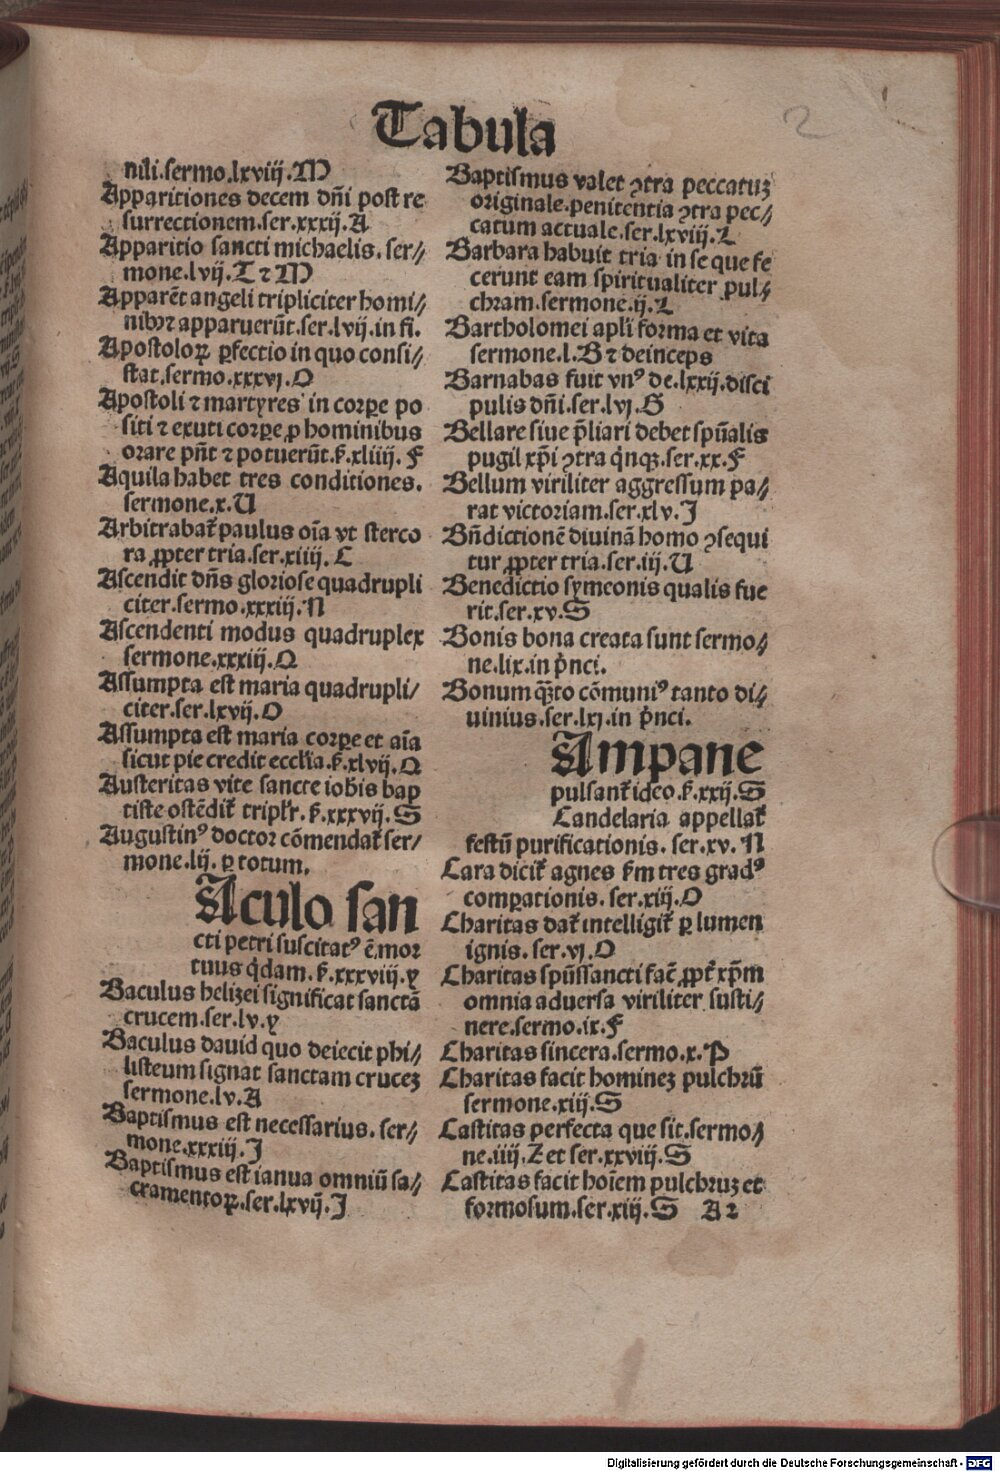 Tabula
2
nili.sermo.lxviij.M
Apparitiones decem dn̄i post re
surrectionem.ser.xxxij.A
Apparitio sancti michaelis. ser⸗
mone.lvij.T ⁊ M
Apparēt angeli tripliciter homi⸗
nibꝫ ⁊ apparuerūt.ser.lvij.in fi.
Apostoloꝝ ꝑfectio in quo consi⸗
stat.sermo.xxxvj.O
Apostoli ⁊ martyres in corꝑe po
siti ⁊ exuti corꝑe ꝓ hominibus
orare pn̄t ⁊ potuerūt.ẜ.xliiij.F
Aquila habet tres conditiones.
sermone.x.U
Arbitrabat᷑ paulus oīa vt sterco
ra ꝓpter tria.ser.xiiij.C
Ascendit dn̄s gloriose quadrupli
citer.sermo.xxxiij.N
Ascendenti modus quadruplex
sermone.xxxiij.Q
Assumpta est maria quadrupli⸗
citer.ser.lxvij.O
Assumpta est maria corꝑe et aīa
sicut pie credit eccl̄ia.ẜ.xlvij.Q
Austeritas vite sancte ioh̄is bap
tiste ostēdit᷑ tripl᷑r.ẜ.xxxvij.S
Augustinꝰ doctor cōmendat᷑ ser⸗
mone.lij. ꝑ totum.
Aculo san
cti petri suscitatꝰ ē mor
tuus q̇dam.ẜ.xxxviij.y
Baculus helizei significat sanctā
crucem.ser.lv.y
Baculus dauid quo deiecit phi⸗
listeum signat sanctam cruceꝫ
sermone.lv.A
Baptismus est necessarius. ser⸗
mone.xxxiij.J
Baptismus est ianua omniū sa⸗
cramentoꝝ.ser.lxvij.J
Baptismus valet ꝯtra peccatuꝫ
originale.penitentia ꝯtra pec⸗
catum actuale.ser.lxviij.L
Barbara habuit tria in se que fe
cerunt eam spiritualiter pul⸗
chram.sermone.ij.L
Bartholomei apl̄i forma et vita
sermone.l.B ⁊ deinceps
Barnabas fuit vnꝰ de.lxxij.disci
pulis dn̄i.ser.lvj.G
Bellare siue p̄liari debet spūalis
pugil xp̄i ꝯtra q̇nqꝫ.ser.xx.F
Bellum viriliter aggressum pa⸗
rat victoriam.ser.xlv.J
Bn̄dictionē diuinā homo ꝯsequi
tur ꝓpter tria.ser.iij.U
Benedictio symeonis qualis fue
rit.ser.xv.S
Bonis bona creata sunt sermo⸗
ne.lix.in ṗnci.
Bonum qꝫto cōmuniꝰ tanto di⸗
uinius.ser.lxj.in ṗnci.
Ampane
pulsant᷑ ideo.ẜ.xxij.S
Candelaria appellat᷑
festū purificationis. ser.xv.N
Cara dicit᷑ agnes ẜm tres gradꝰ
comꝑationis. ser.xiij.O
Charitas dat᷑ intelligit᷑ ꝑ lumen
ignis. ser.vj.O
Charitas spūssancti fac̄ ꝓpt᷑ xp̄m
omnia aduersa viriliter susti⸗
nere.sermo.ix.F
Charitas sincera.sermo.x.P
Charitas facit homineꝫ pulchrū
sermone.xiij.S
Castitas perfecta que sit.sermo⸗
ne.iiij.Z et ser.xxviij.S
Castitas facit hoīem pulchruꝫ et
formosum.ser.xiij.S A 2
Digitalisierung gefördert durch die Deutsche Forschungsgemeinschaft - DFG